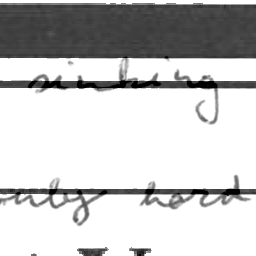 sinking
only hard